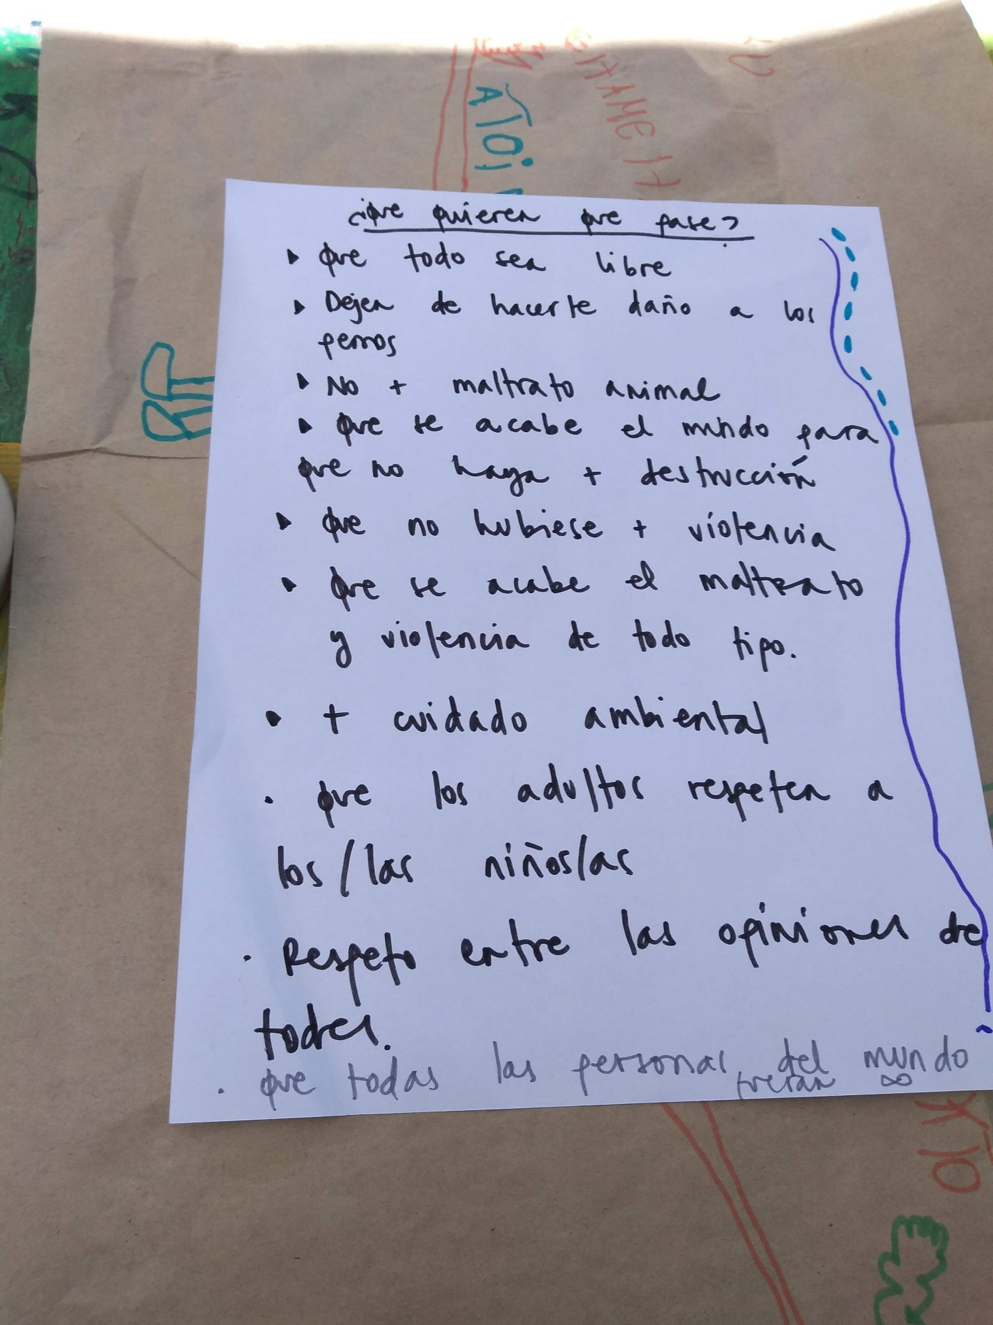 ¿Que quieren que pase?
Que todo sea libre
Dejen de hacerle daño a los
perros
No + maltrato animal
Que se acabe el mundo para
que no haya + destrucción
Que no hubiese + violencia
Que se acabe el maltrato
y violencia de todo tipo.
+ cuidado ambiental
Que los adultos respeten a
los/las niños/as
Respeto entre las opiniones de
todes.
Que todas las personas del mundo
fueran ∞